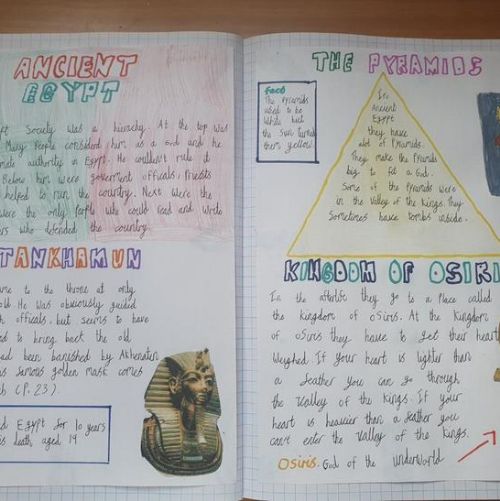 ANCIENT
EGYPT
Society was a hierachy. At the top was
Many People considered him as a God and he
authority in Egypt. He couldn't rule it
Below him were goverment officals, Priests
helped to run the country. Next were the
were the only people who could read and write
who defended the country.
TANKHAMUN
to the throne at only
old. He was obviously guided
officals, but seems to have
to bring back the old
had been banished by Akhenaten
famous golden mask comes
(P. 23).
Egypt for 10 years
death aged 19
THE PYRAMIDS
fact
The Pyramids
used to be
White but
the Sun turned
them yellow.
In
Ancient
Egypt
they have
alot of Pyramids.
They make the Pyramids
big to fit a God.
Some of the Pyramids were
in the Valley of the Kings. They
Sometimes have tombs inside.
KINGDOM OF OSIRI
In the afterlife they go to a Place called
the kingdom of osiris. At the Kingdom
of osiris they have to get their heart
Weighed. If your heart is lighter than
a feather you can go through
the Valley of the Kings. If your
heart is heavier than a feather you
can't enter the Valley of the Kings.
Osiris. God of the underworld